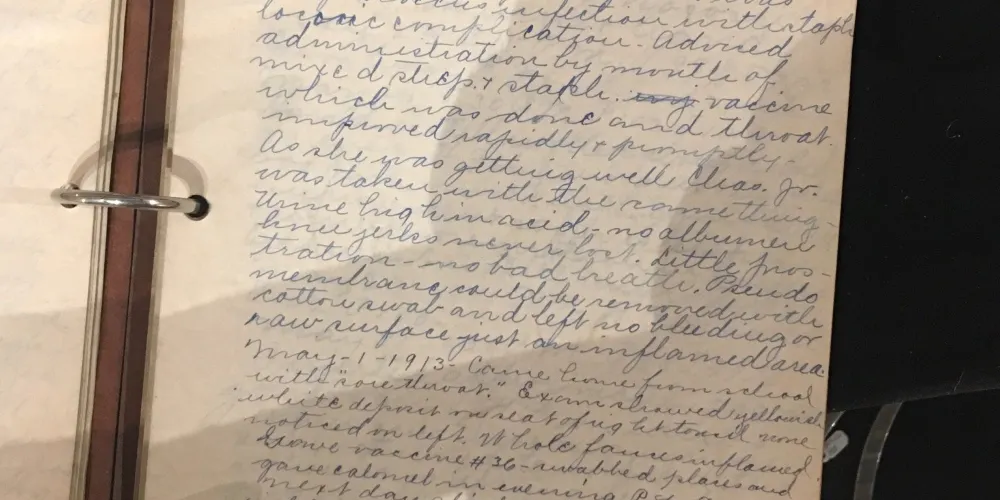 infection with staph
lococcic complication - Advised
administration by mouth of
mixed strep. + staph. vaccine
which was done and throat
improved rapidly + promptly -
As she was getting well Chas. Jr.
was taken with the same thing -
Urine high in acid - no albumen
knee jerks never lost. Little pros-
tration - no bad breath. Pseudo
membrane could be removed with
cotton swab and left no bleeding or
raw surface just an inflamed area.
May - 1 - 1913 - Came home from school
with "sore throat." Exam showed yellowish
white deposit on seat of right tonsil none
noticed on left. Whole fauces inflamed
Gave vaccine #36 - swabbed places and
gave calomel in evening
next day